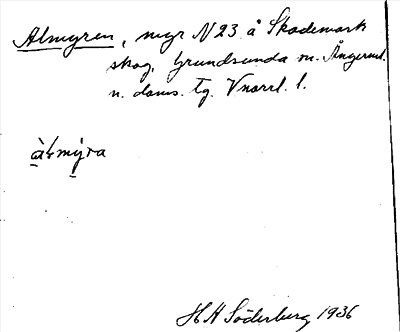 Almyren, myr N 23 å Skademark
skog, Grundsunda sn. Ångerml.
n. doms. tg. Vnorrl. l.
H H Söderberg 1936